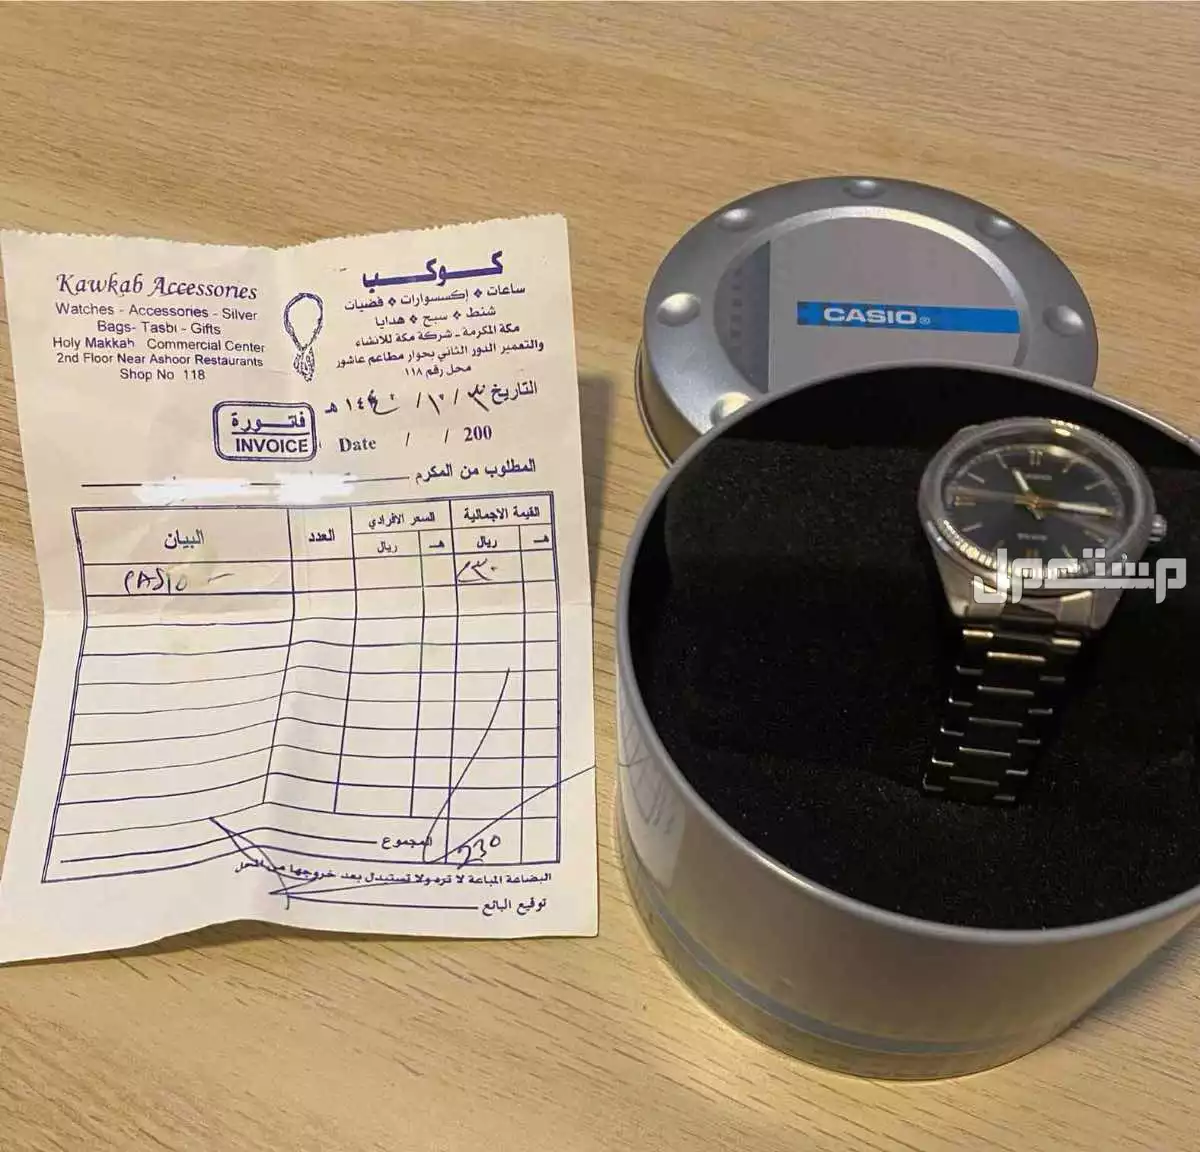 Kawkab Accessories
Watches - Accessories - Silver
Bags- Tasbi - Gifts
Holy Makkah Commercial Center
2nd Floor Near Ashoor Restaurants
Shop No 118
كوكب
ساعات ❖ إكسسوارات ❖ فضيات
شنط ❖ سبح ❖ هدايا
مكة المكرمة - شركة مكة للانشاء
والتعمير الدور الثاني بجوار مطاعم عاشور
محل رقم ١١٨
التاريخ ١٤٤٠ / ١٠ / ٣٠ هـ
فاتورة
INVOICE
Date / / 200
المطلوب من المكرم
البيان العدد السعر الافرادي القيمة الاجمالية
ريال هـ ريال هـ
CASIO
المجموع 230
البضاعة المباعة لا ترد ولا تستبدل بعد خروجها من المحل
توقيع البائع
CASIO®
CASIO
مستعمل